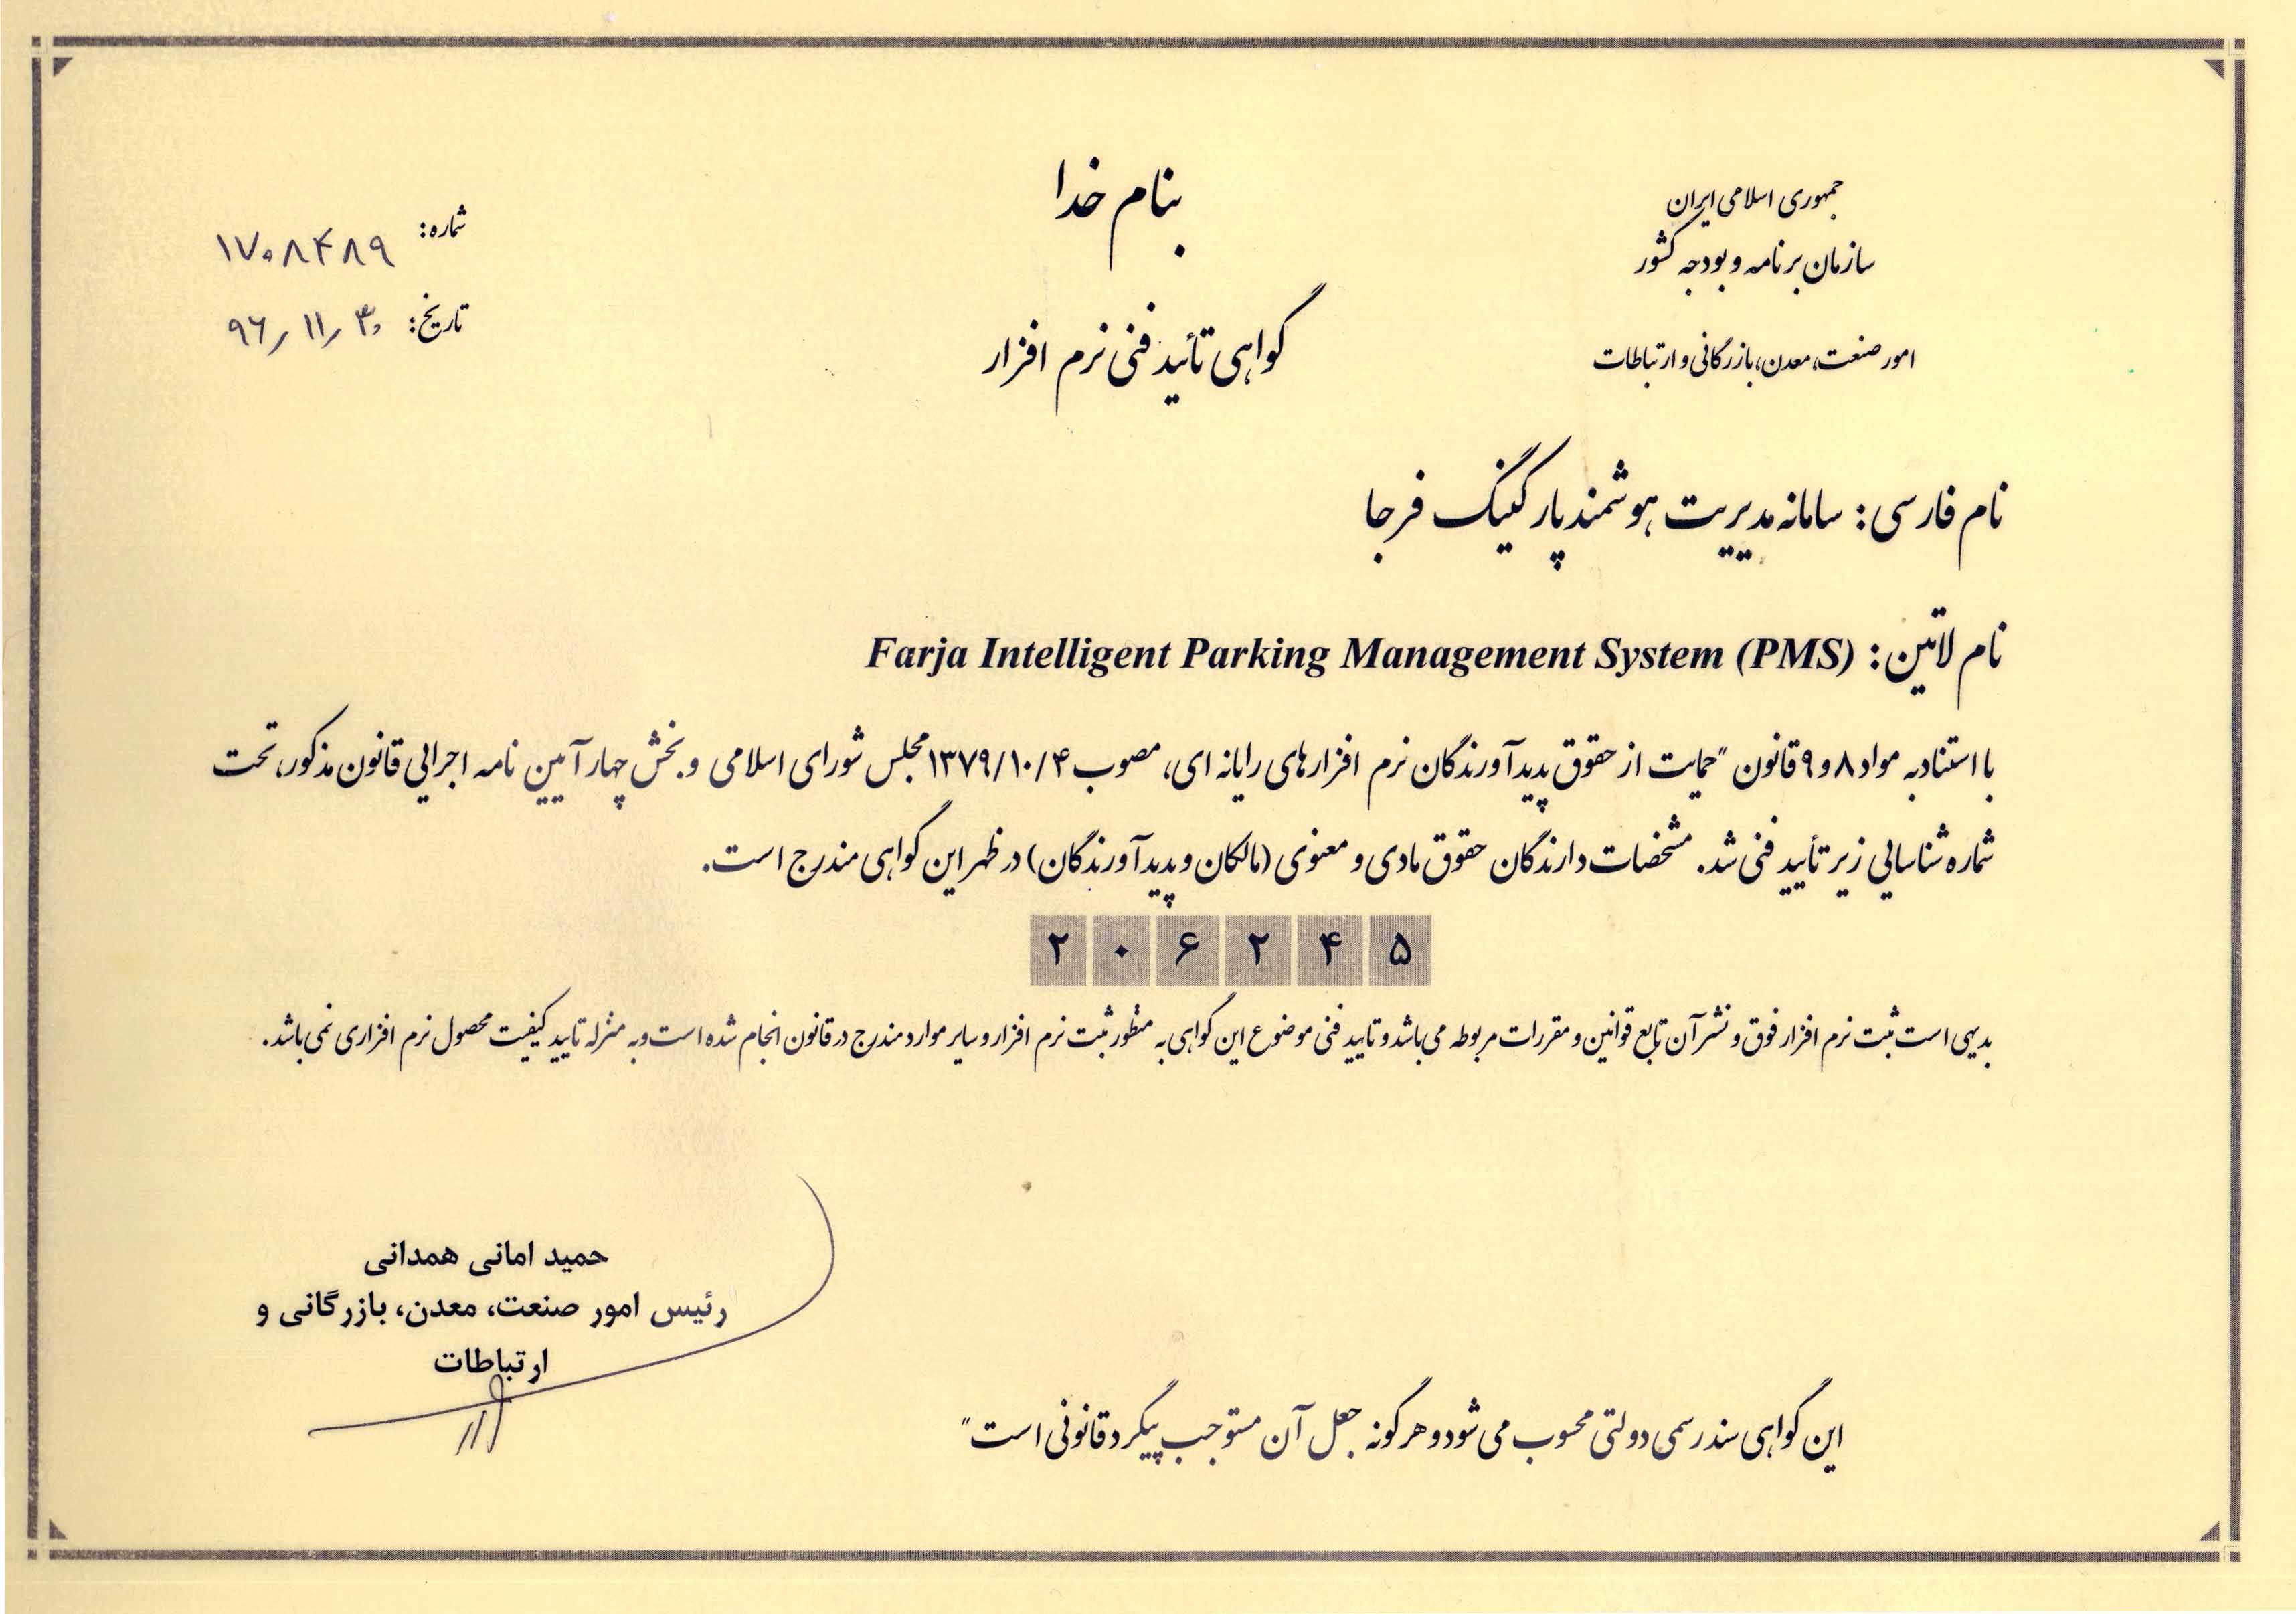 بنام خدا
جمهوری اسلامی ایران
سازمان برنامه و بودجه کشور
امور صنعت، معدن، بازرگانی و ارتباطات
شماره: ۱۷۰۸۴۸۹
تاریخ: ۹۶/۱۱/۳۰
گواهی تأئید فنی نرم افزار
نام فارسی: سامانه مدیریت هوشمند پارکینگ فرجا
نام لاتین: Farja Intelligent Parking Management System (PMS)
با استناد به مواد ۸ و ۹ قانون "حمایت از حقوق پدیدآورندگان نرم افزارهای رایانه ای، مصوب ۱۳۷۹/۱۰/۴ مجلس شورای اسلامی و بخش چهار آیین نامه اجرایی قانون مذکور، تحت
شماره شناسایی زیر تأیید فنی شد. مشخصات دارندگان حقوق مادی و معنوی (مالکان و پدیدآورندگان) در ظهر این گواهی مندرج است.
۲۰۶۲۴۵
بدیهی است ثبت نرم افزار فوق و نشر آن تابع قوانین و مقررات مربوطه می باشد و تایید فنی موضوع این گواهی به منظور ثبت نرم افزار و سایر موارد مندرج در قانون انجام شده است و به منزله تایید کیفیت محصول نرم افزاری نمی باشد.
حمید امانی همدانی
رئیس امور صنعت، معدن، بازرگانی و
ارتباطات
این گواهی سند رسمی دولتی محسوب می شود و هرگونه جعل آن مستوجب پیگرد قانونی است"